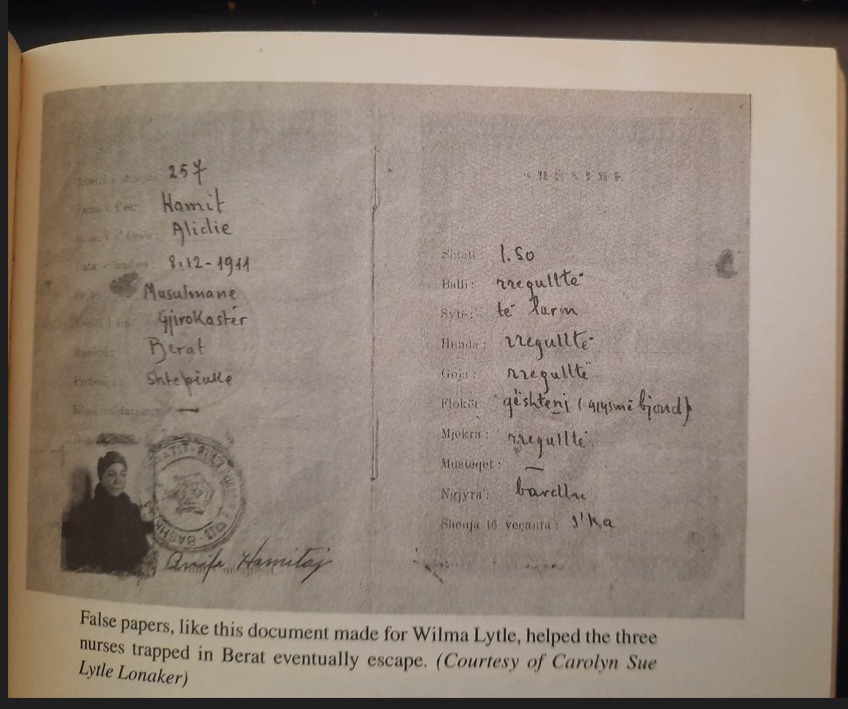 257
Hamit
Alidie
8.12-1911
Musulmane
Gjirokastër
Berat
Shtëpiake
Hamitaj
Shtati: 1.50
Balli: rregulltë
Sytë: të larm
Hunda: rregulltë
Goja: rregulltë
Flokët: gështenj (gjysmë bjond)
Mjekra: rregulltë
Musteqet: —
Ngjyra: bardhe
Shenja të veçanta: s'ka
False papers, like this document made for Wilma Lytle, helped the three
nurses trapped in Berat eventually escape. (Courtesy of Carolyn Sue
Lytle Lonaker)